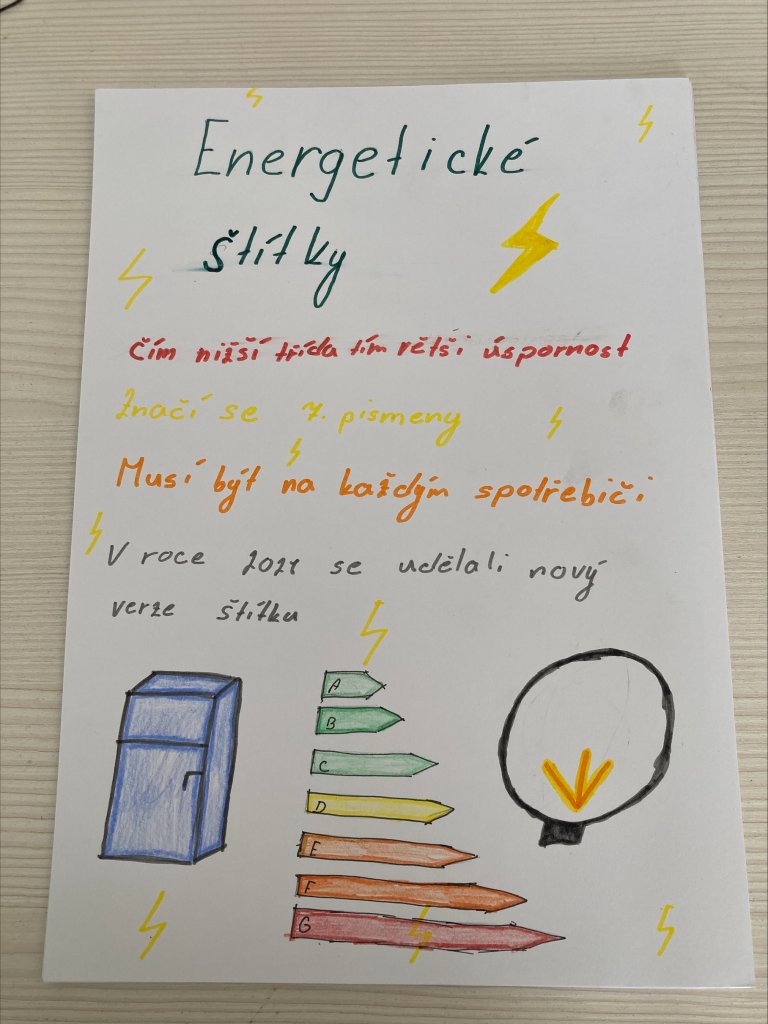 Energetické
štítky
čím nižší třída tím větši úspornost
Značí se 7. pismeny
Musí být na každým spotřebiči
V roce 2021 se udělali nový
verze štítku
A
B
C
D
E
F
G